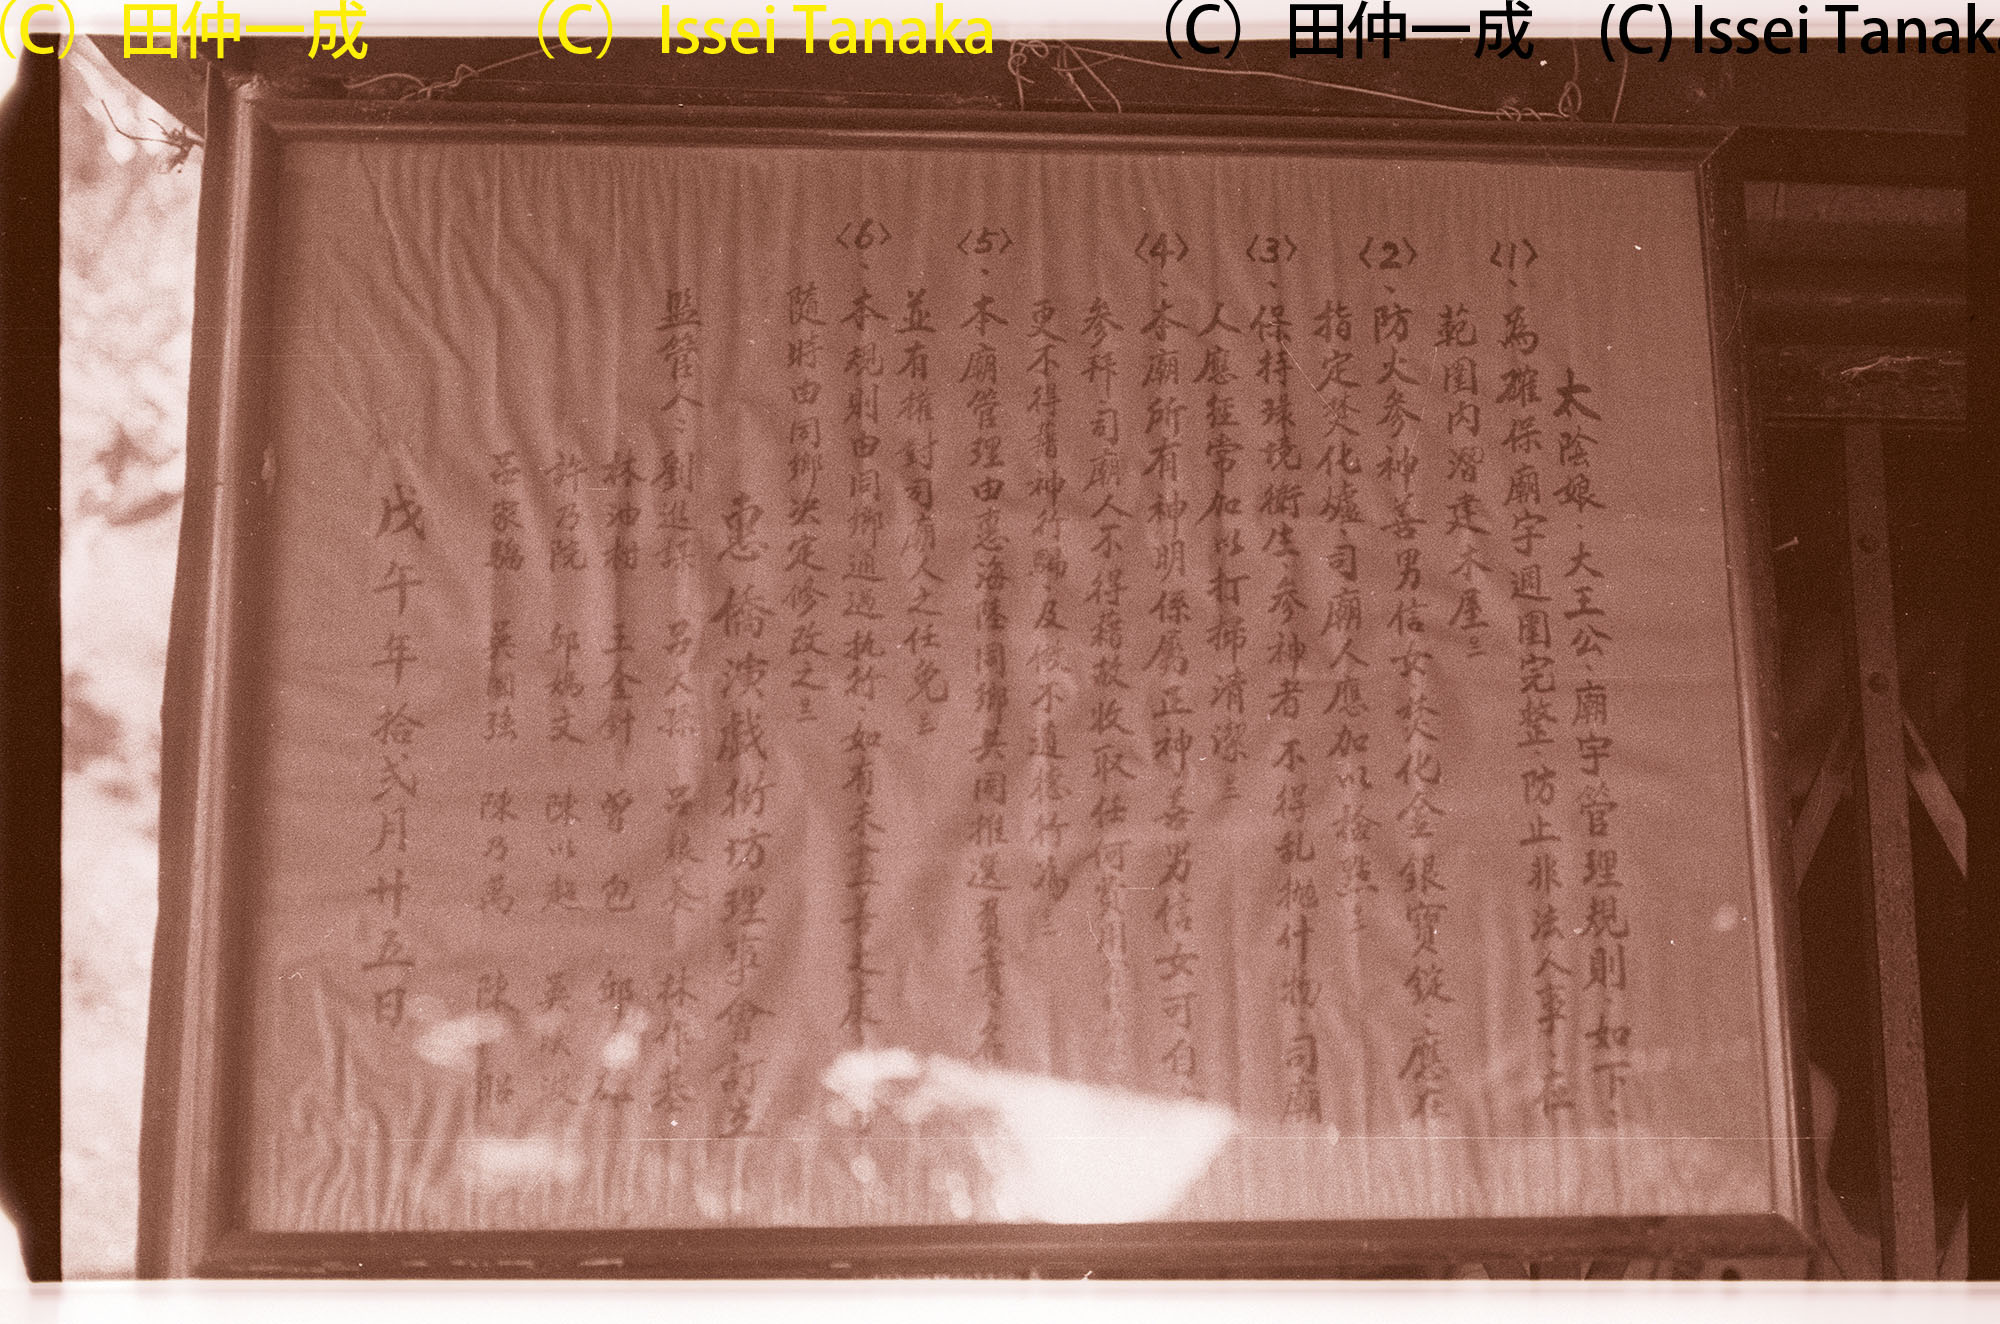 (C) 田仲一成 (C) Issei Tanaka (C) 田仲一成 (C) Issei Tanaka
太陰娘、大王公、廟宇管理規則、如下、
〈1〉、為確保廟宇週圍完整、防止非法人事、在
範圍內潛建木屋。
〈2〉、防火參神善男信女焚化金銀寶錠、應在
指定焚化爐、司廟人應加以檢點。
〈3〉、保持環境衛生、參神者不得乱拋什物、司廟
人應經常加以打掃清潔。
〈4〉、本廟所有神明係屬正神善男信女可自
參拜、司廟人不得藉故收取任何費用
更不得藉神行騙、及做不道德行為。
〈5〉、本廟管理由惠海陸同鄉共同推選負責
並有權對司廟人之任免。
〈6〉、本規則由同鄉通過执行、如有未盡善之處
隨時由同鄉決定修改之。
惠僑演戲街坊理事會訂立
監管人： 劉進 呂 孫 呂 林作基
林油樹 王金針 曾色 邱
許乃院 邱媽文 陳以起 吳 波
呂家駒 吳國強 陳乃萬 陳
戊午年拾弍月廿五日